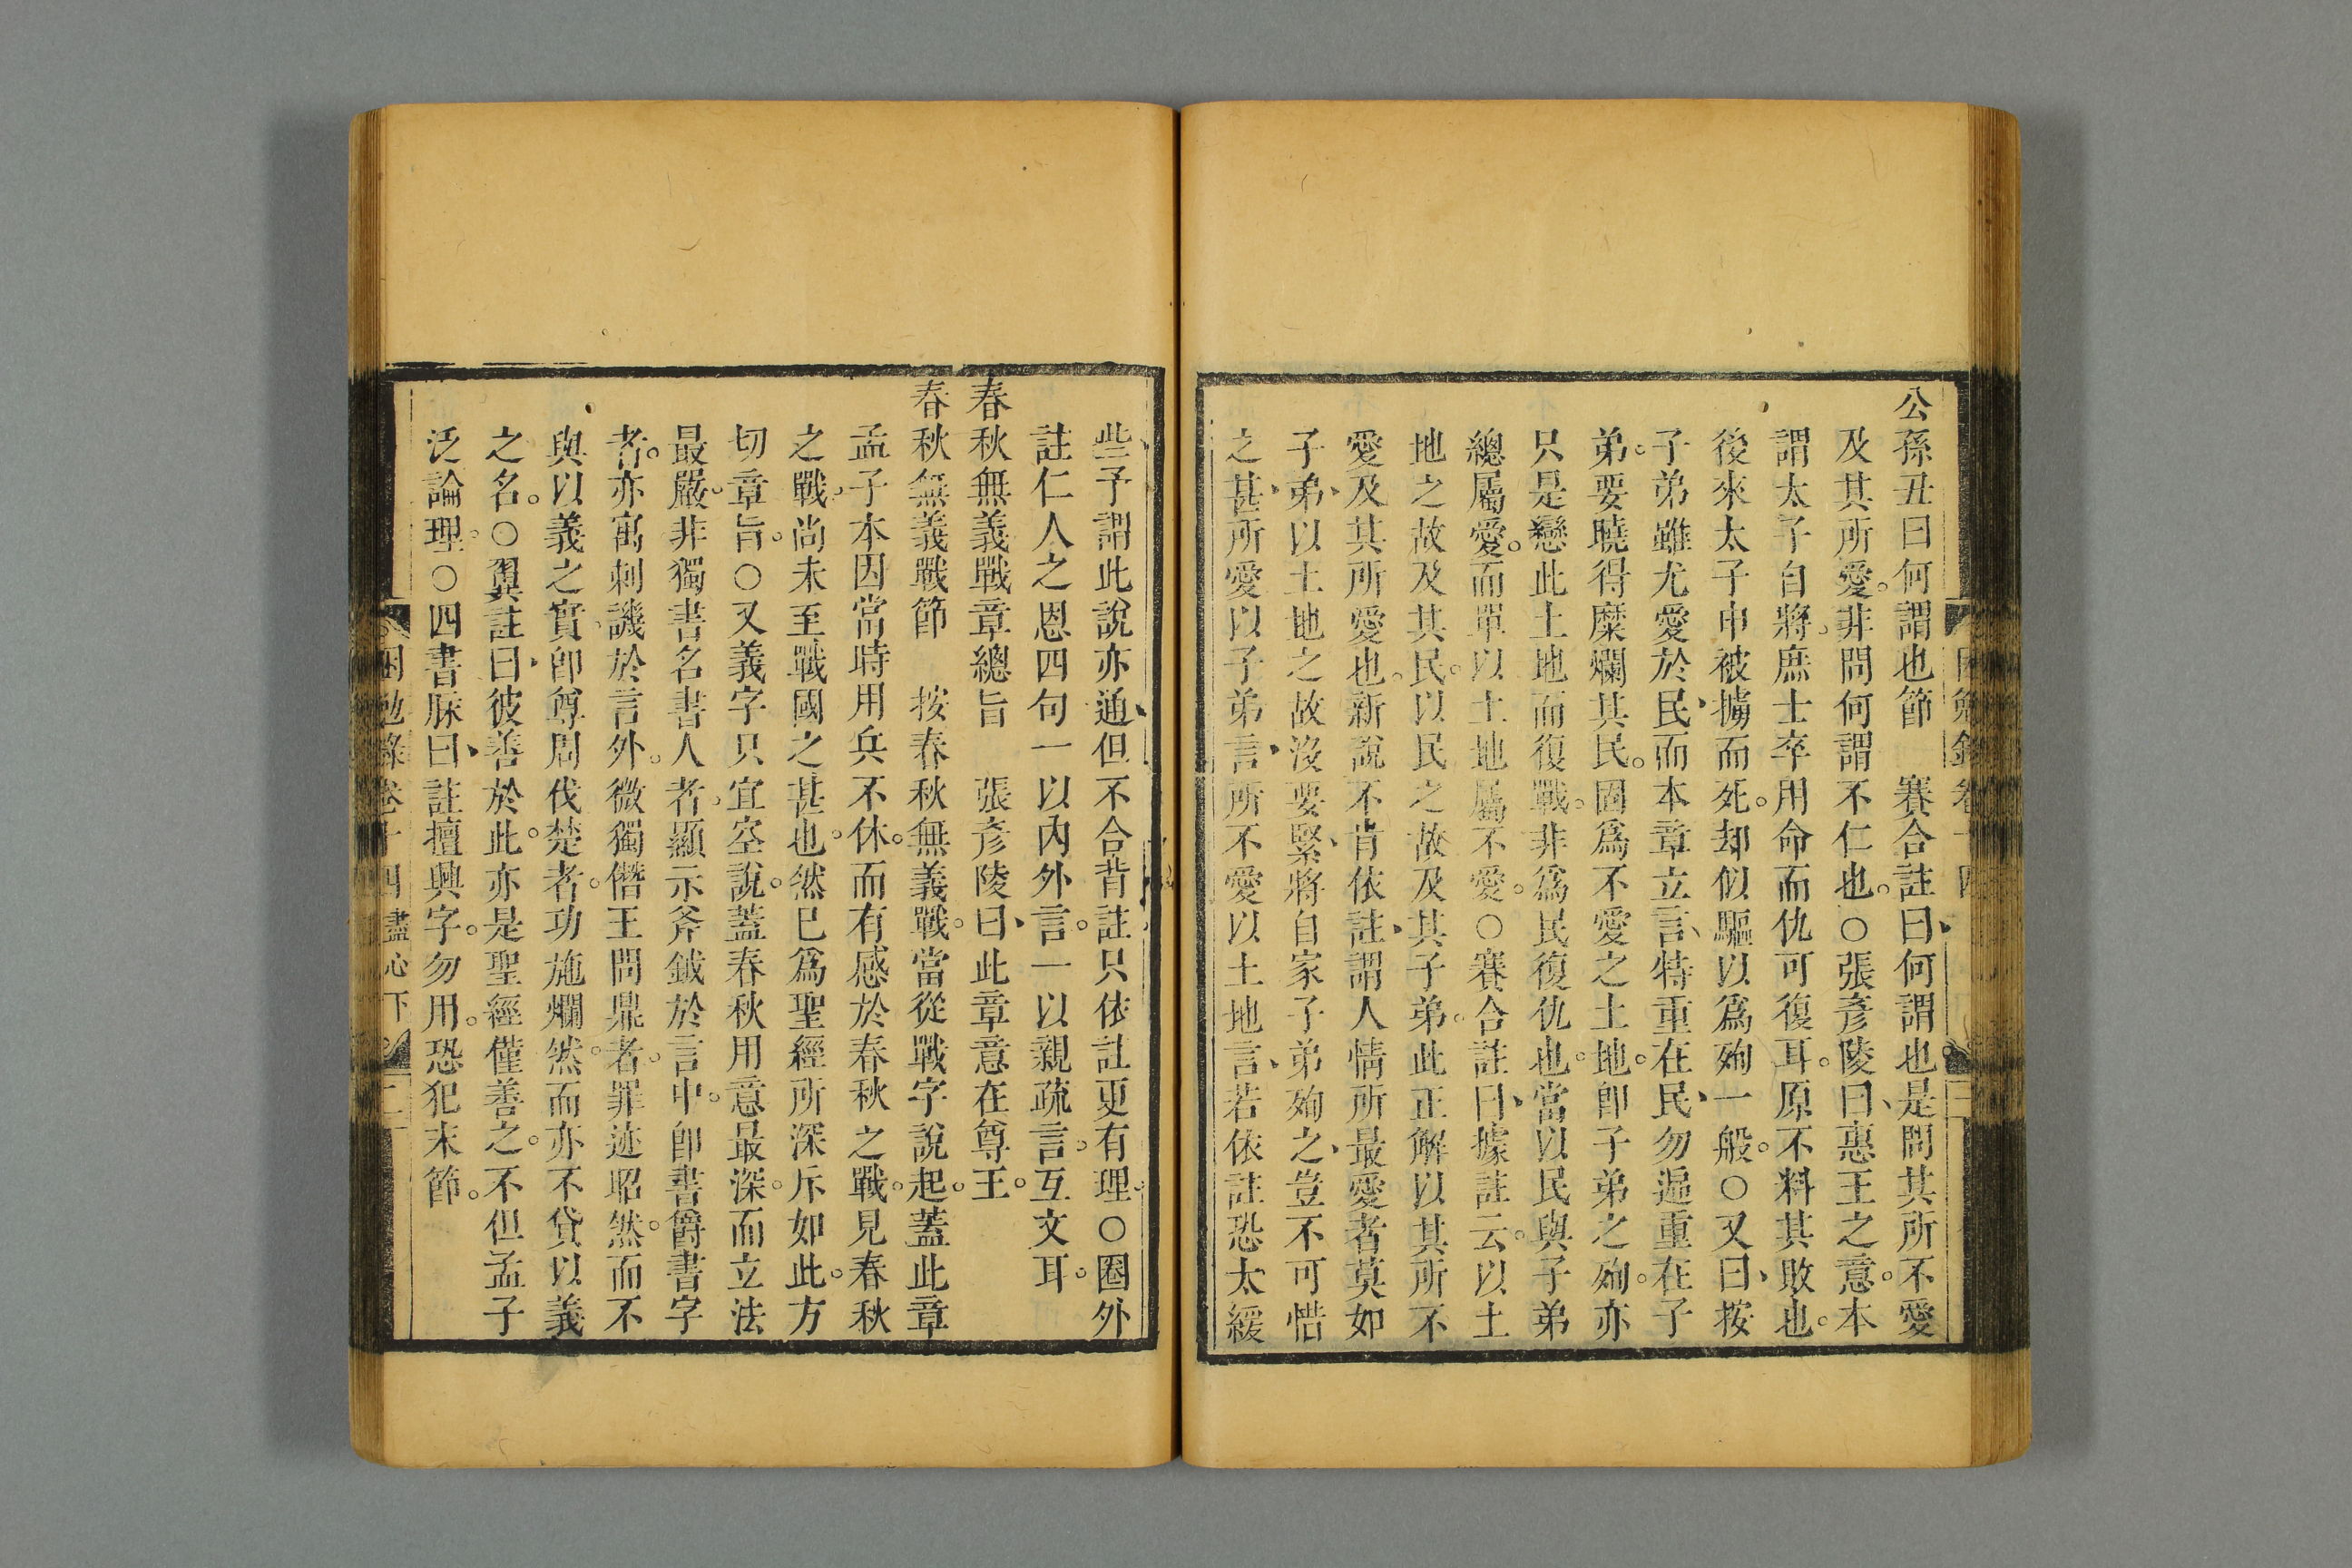 公孫丑曰何謂也節　賽合註曰何謂也是問其所不愛
及其所愛。非問何謂不仁也。○張彥陵曰、惠王之意。本
謂太子自將。庶士卒用命而仇可復耳。原不料其敗也。
後來太子申被擄而死。却似驅以爲殉一般。○又曰、按
子弟雖尤愛於民、而本章立言、特重在民、勿遍重在子
弟。要曉得糜爛其民。固爲不愛之土地。卽子弟之殉。亦
只是戀此土地而復戰。非爲民復仇也。當以民與子弟
總屬愛。而單以土地屬不愛。○賽合註曰、據註云。以土
地之故及其民。以民之故及其子弟。此正解以其所不
愛及其所愛也。新說不肯依註、謂人情所最愛者莫如
子弟、以土地之故沒要緊、將自家子弟殉之、豈不可惜
之甚、所愛以子弟言、所不愛以土地言、若依註恐太緩
些、予謂此說亦通、但不合背註、只依註更有理。○圈外
註仁人之恩四句一以內外言。一以親疏言。互文耳。
春秋無義戰章總旨　張彥陵曰、此章意在尊王。
春秋無義戰節　按春秋無義戰。當從戰字說起。蓋此章
孟子本因當時用兵不休。而有感於春秋之戰。見春秋
之戰。尚未至戰國之甚也。然已爲聖經所深斥如此。方
切章旨。○又義字只宜空說。蓋春秋用意最深。而立法
最嚴。非獨書名書人者。顯示斧鉞於言中。卽書爵書字
者。亦寓刺譏於言外。微獨僭王問鼎者。罪迹昭然。而不
與以義之實。卽尊周伐楚者。功施爛然。而亦不貸以義
之名。○翼註曰、彼善於此。亦是聖經僅善之。不但孟子
泛論理。○四書脉曰、註擅興字。勿用。恐犯末節。
困勉錄卷十四盡心下　二